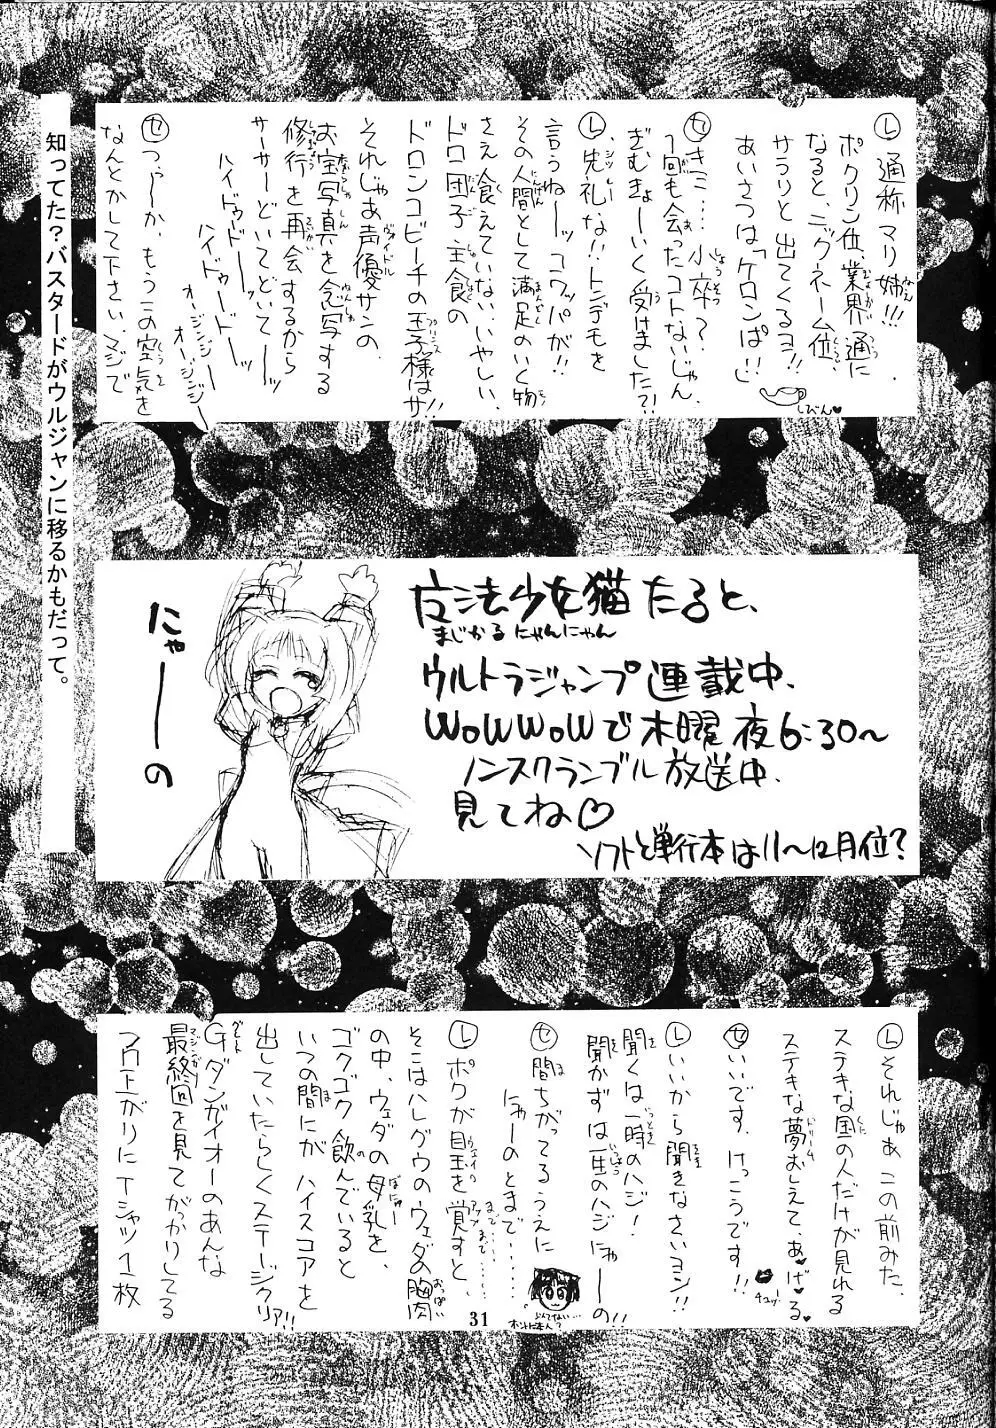 Ⓛ通称マリ姉!!!
ポクリン位業界通に
なると、ニックネーム位、
サラリと出てくるヨ!!
あいさつは「ケロンぱ!!」
しびん♥
Ⓢき…小卒?
1回も会ったコトないじゃん
ぎむきょーいく受けました?!
Ⓛ失礼な!!トンデモを
言うねーッコワッパが!!
その人間として満足のいく物
さえ食えていない、いやしい、
ドロ団子主食の
ドロンコビーチの王子様はサ!!
それじゃあ声優サンの、
お宝写真を念写する
修行を再会するから
サーサーどいてどいてーッ
ハイドゥードードーッ
ハイドゥードドー
オージンジー
オージンジー
Ⓢつぅーか、もうこの空気を
なんとかして下さい、マジで
知ってた?バスタードがウルジャンに移るかもだって。
魔法少女猫たると、
まじかるにゃんにゃん
ウルトラジャンプ連載中、
WOWWOWで木曜夜6:30〜
ノンスクランブル放送中、
見てね♡
ソフトと単行本は11〜12月位?
にゃーの
Ⓛそれじゃあこの前みた、
ステキな国の人だけが見れる
ステキな夢おしえて、あ♥げ♥る♥
チュッ!
Ⓢいいです、けっこうです!!
Ⓛいいから聞きなさいヨン!!
聞くは一時のハジ!
聞かずは一生のハジにゃーの!!
Ⓢ間ちがってるうえに
にゃーのとまで……
Ⓛポクが目玉を覚すと、
そこはハレグウのウェダの胸肉
の中、ウェダの母乳を、
ゴクゴク飲んでいると
いつの間にがハイスコアを
出していたらしくステージクリア!!
Gダンガイオーのあんな
最終回を見てがかりしてる
フロ上がりにTシャツ1枚
31